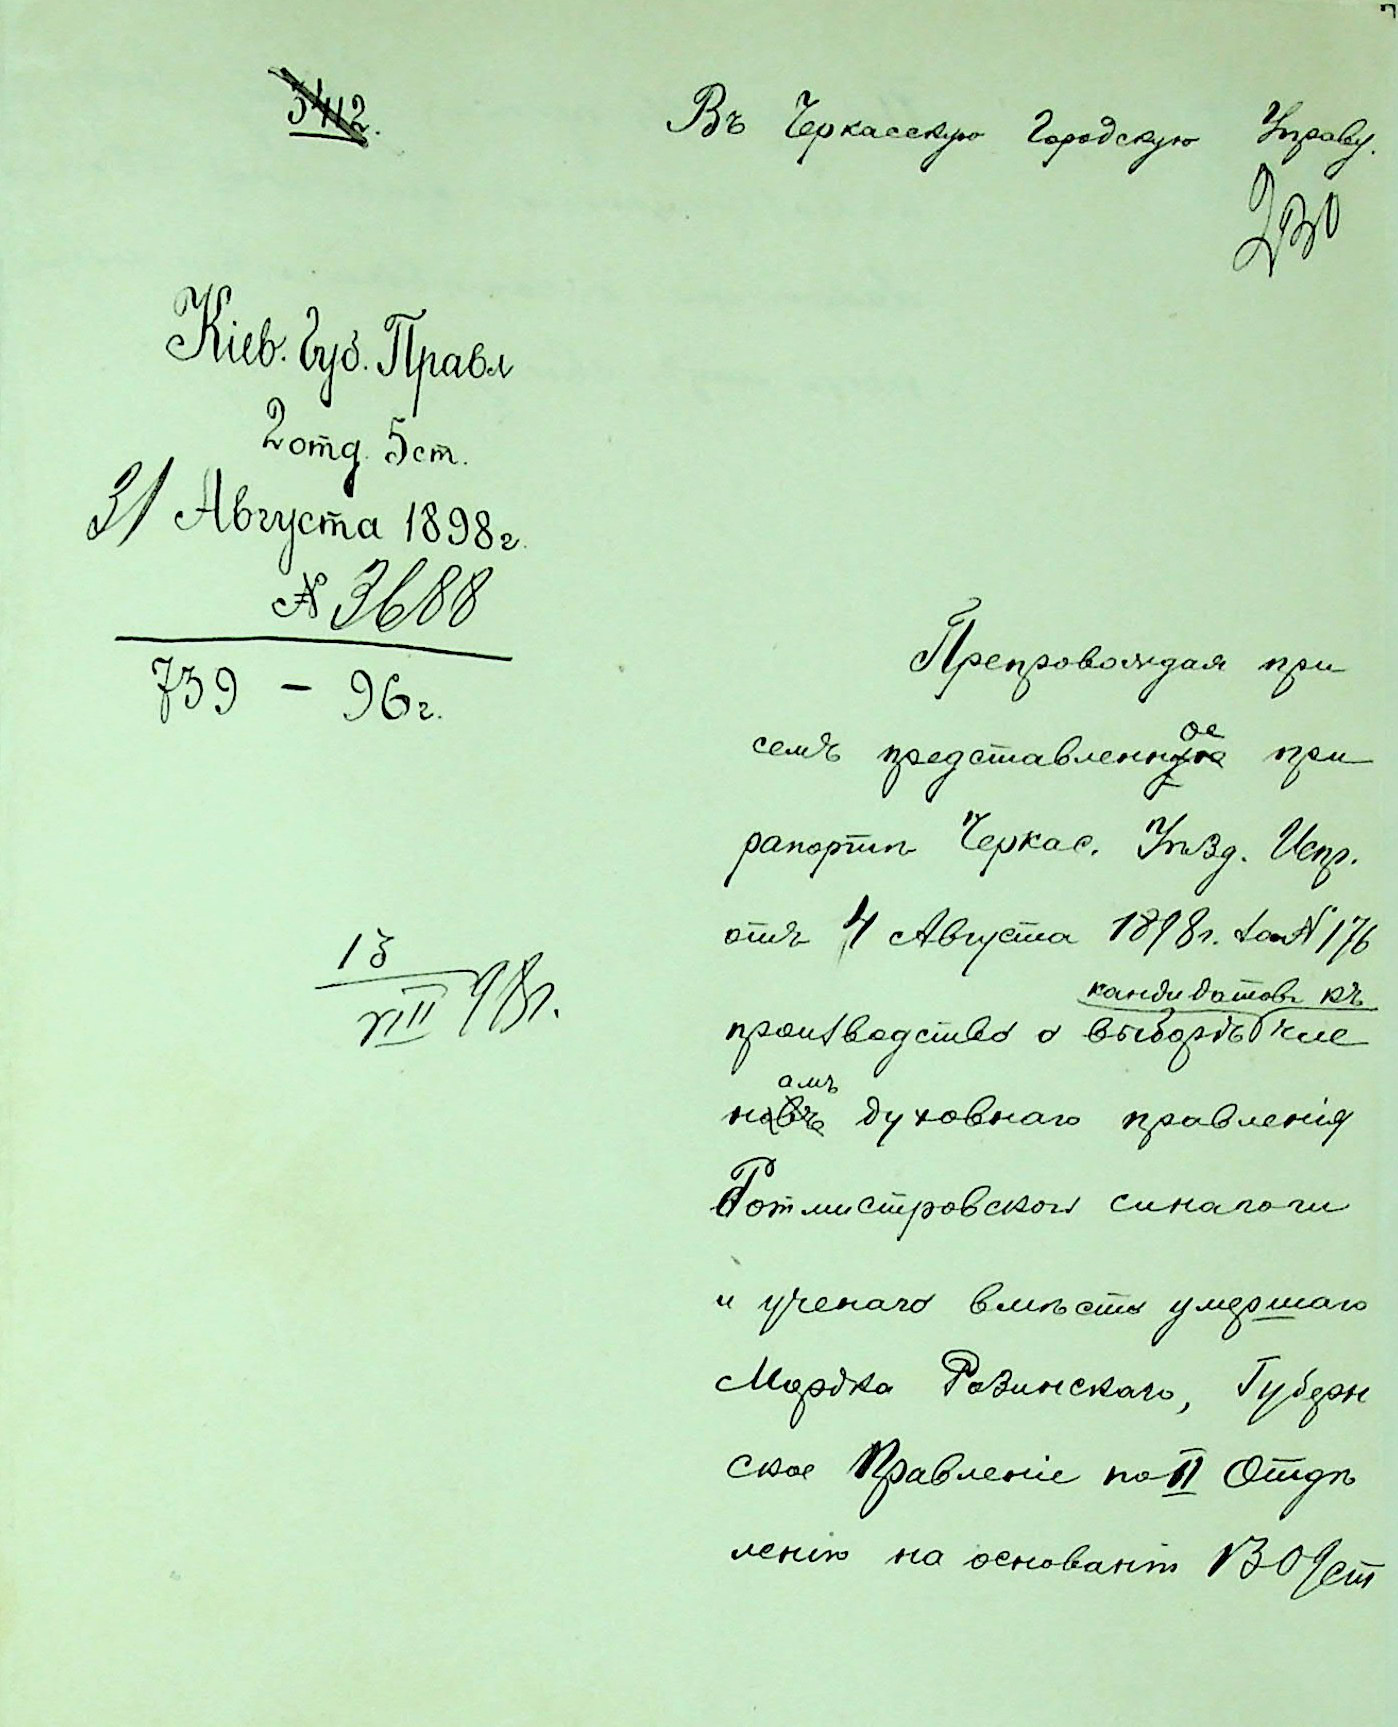 3412.
Въ Черкасскую Городскую Управу.
Кіев. Губ. Правл
2 отд. 5 ст.
31 Августа 1898 г.
№ 3688
739 - 96 г.
Препровождая при
семъ представленное при
рапортѣ Черкас. Уѣзд. Испр.
отъ 4 Августа 1898 г. за № 176
кандидатовъ къ
производство о выборѣ чле
намъ духовнаго правленія
Ротмистровской синагоги
и ученаго вмѣсто умершаго
Мордка Розинскаго, Губерн
ское Правленіе по II Отдѣ
ленію на основаніи 1309 ст
13
VIII 98 г.